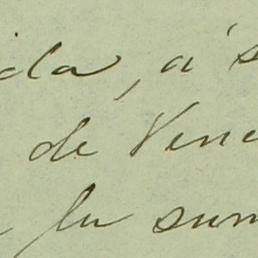 ida, a s
de Vene
fu sum